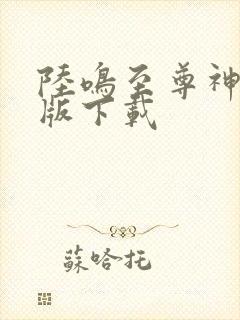 陸鳴至尊神
版下載
蘇哈托